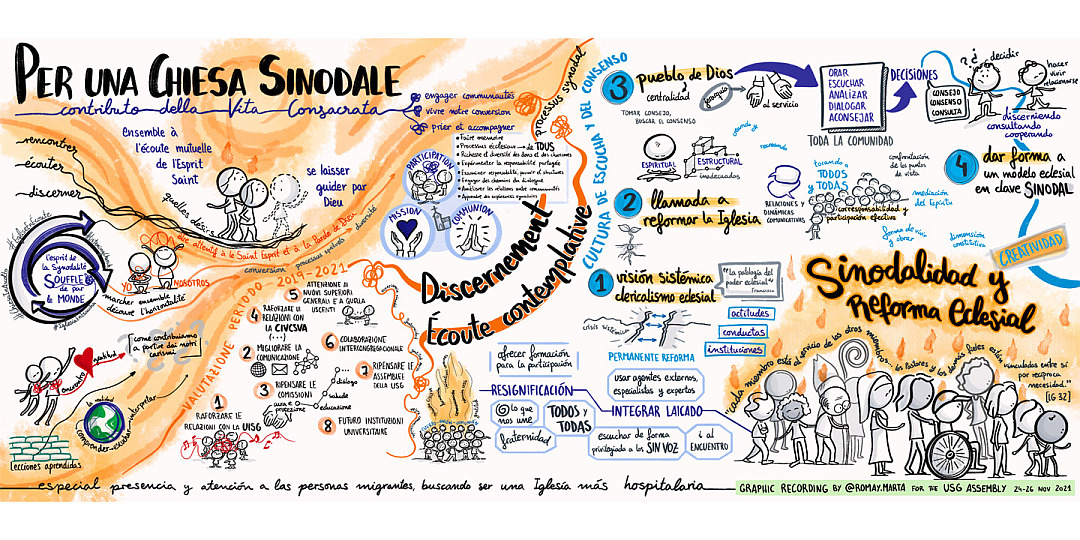 PER UNA CHIESA SINODALE
contributo della Vita Consacrata
rencontrer
écouter
discerner
Ensemble à
l'écoute mutuelle
de l'Esprit
Saint
se laisser
guider par
Dieu
quelles désirs
être attentif à le Saint Esprit et à la Parole de Dieu
conversion processus spirituels diversité
engager communautés
vivre notre conversion
prier et accompagner
processus synodal
PARTICIPATION
Faire memoire
Processus ecclésiaux → de TOUS
Richesse et diversité des dons et des charismes
Expérimenter la responsabilité partagée
Examiner responsabilité, pouvoir et structures
Engager des chemins du dialogue
Améliorer les relations entre communautés
Apprendre des expériences synodales
MISSION
COMMUNION
l'esprit de
la Synodalité
SOUFFLE
de par
le MONDE
YO
NOSOTROS
marcher ensemble
découvre l'hospitalité
gratitud
encuentro
"come contribuiamo
a partire dai nostri
carismi
la realidad
comprender-escuchar-interpretar
lecciones aprendidas
VALUTAZIONE PERIODO 2019-2021
5 ATTENZIONE AI
NUOVI SUPERIORI
GENERALI E A QUELLI
USCENTI
4 RAFFORZARE LE
RELAZIONI CON LA
CIVCSVA
(...)
2 MIGLIORARE LA
COMUNICAZIONE
3 RIPENSARE LE
COMISSIONI
cura e
protezione
dialogo
salute
educazione
1 RAFORZARE LE
RELAZIONI CON LA UISG
6 COLABORAZIONE
INTERCONGREGAZIONALE
7 RIPENSARE LE
ASSEMBLEE
DELLA USG
8 FUTURO INSTITUZIONI
UNIVERSITARIE
Discernement
Écoute contemplative
CULTURA DE ESCUCHA Y DEL CONSENSO
3 pueblo de Dios
centralidad
TOMAR CONSEJO,
BUSCAR EL CONSENSO
jerarquía
al servicio
ORAR
ESCUCHAR
ANALIZAR
DIALOGAR
ACONSEJAR
TODA LA COMUNIDAD
DECISIONES
CONSEJO
CONSENSO
CONSULTA
decidir
hacer
vivir
relacionarse
discerniendo
consultando
cooperando
4 dar forma a
un modelo eclesial
en clave SINODAL
ESPIRITUAL
ESTRUCTURAL
inadecuadas
2 llamada a
reformar la Iglesia
RELACIONES Y
DINÁMICAS
COMUNICATIVAS
TODOS
Y TODAS
corresponsabilidad y
participación efectiva
confrontación de
los puntos
de vista
mediación
del Espíritu
forma de vivir
y obrar
dimensión
constitutiva
CREATIVIDAD
1 visión sistémica
clericalismo eclesial
"La patología del
poder eclesial"
Francisco
crisis sistémica
PERMANENTE REFORMA
actitudes
conductas
instituciones
Sinodalidad y
Reforma Eclesial
"cada miembro está al servicio de los otros miembros... los Pastores y los demás fieles están
vinculados entre sí
por recíproca
necesidad."
[LG 32]
ofrecer formación
para la participación
RESIGNIFICACIÓN
usar agentes externos,
especialistas y expertos
lo que
nos une
TODOS y
TODAS
INTEGRAR LAICADO
fraternidad
escuchar de forma
privilegiada a los SIN VOZ
i al
ENCUENTRO
especial presencia y atención a las personas migrantes, buscando ser una Iglesia más hospitalaria
GRAPHIC RECORDING BY @ROMAY.MARTA FOR THE USG ASSEMBLY 24-26 NOV 2021